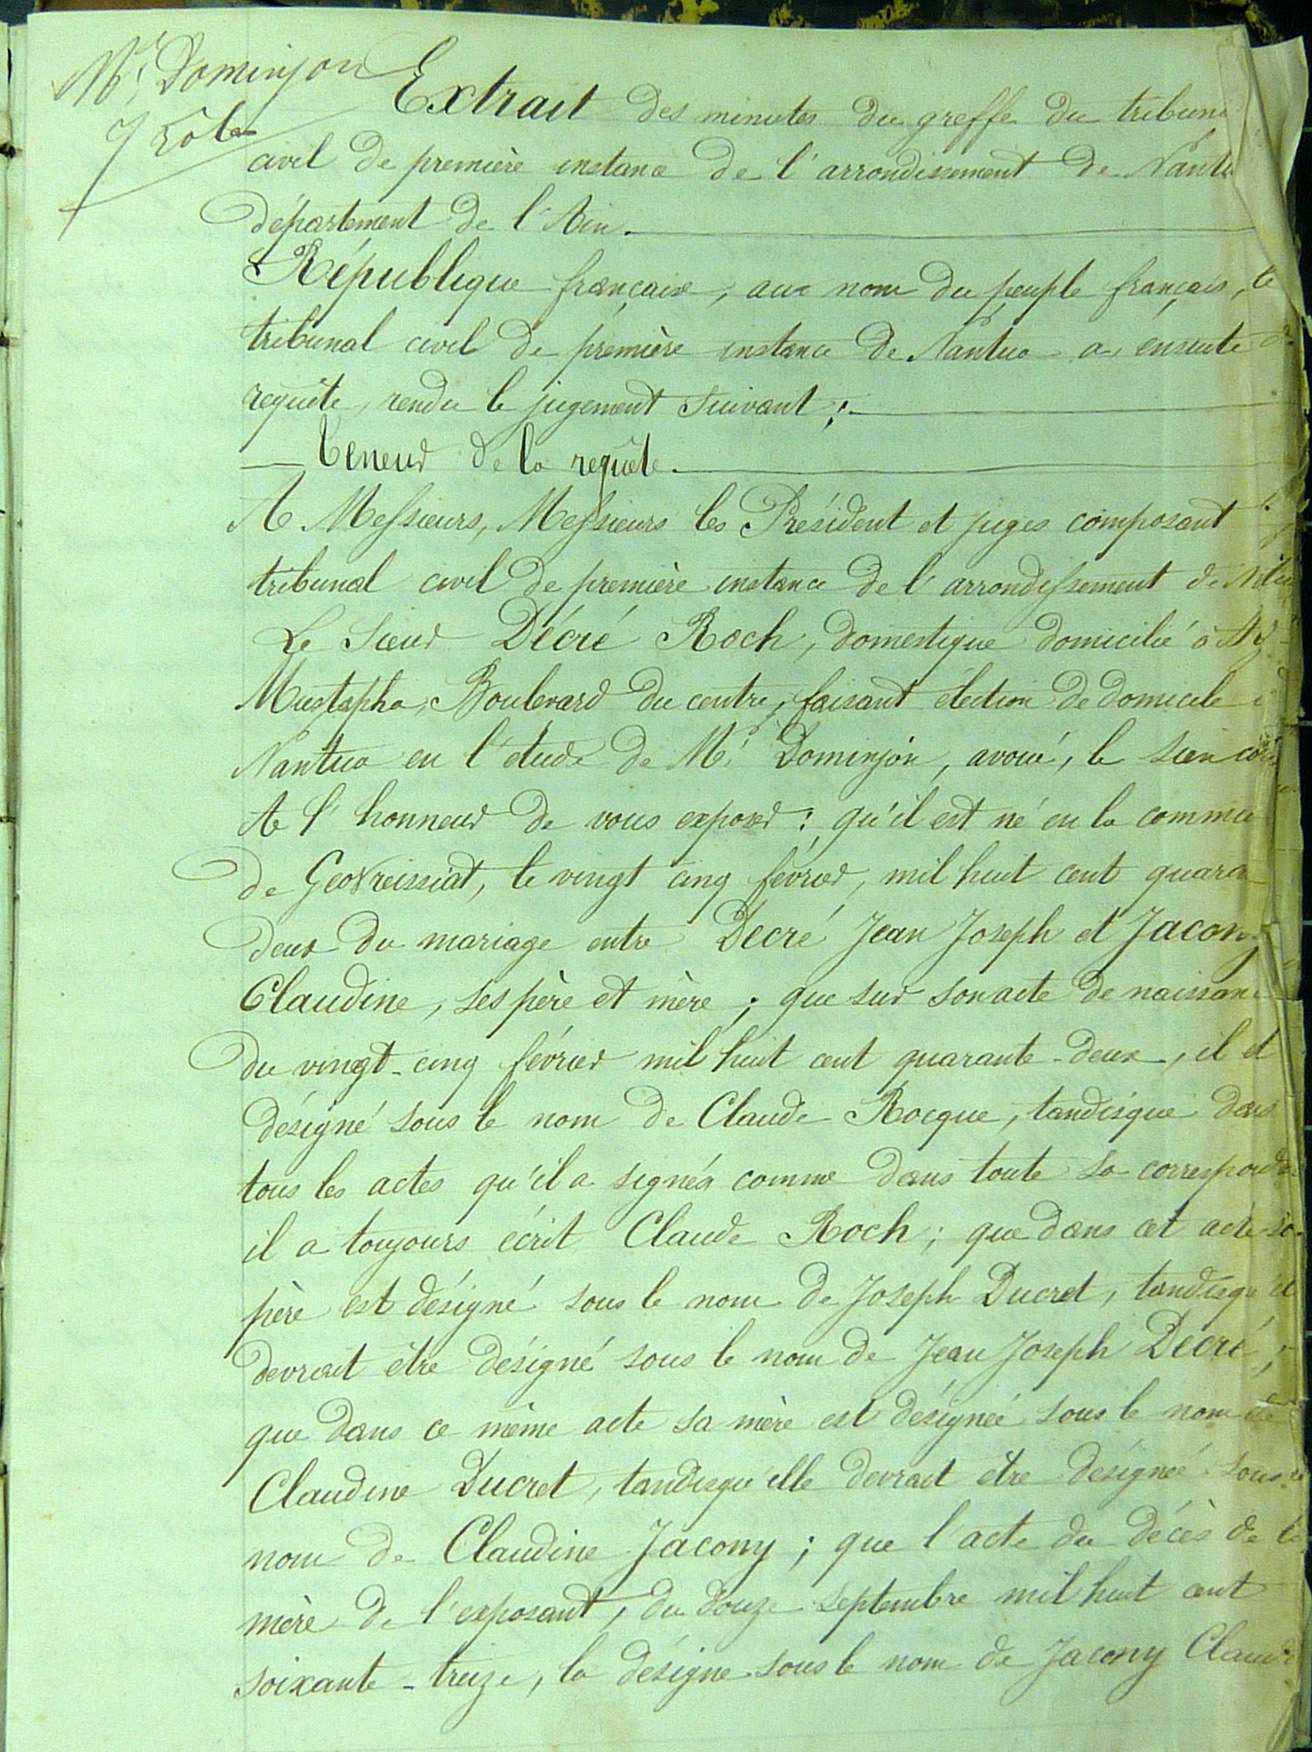 Me Dominjon
7 Rôles
Extrait des minutes du greffe du tribun
civil de première instance de l'arrondissement de Nantu
département de l'Ain.
République française, au nom du peuple français, le
tribunal civil de première instance de Nantua a, ensuite de
requête, rendu le jugement suivant :
Teneur de la requête.
A Messieurs, Messieurs les Président et juges composant le
tribunal civil de première instance de l'arrondissement de
Le Sieur Décré Roch, domestique domicilié à
Mustapha, Boulevard du centre, faisant élection de domicile à
Nantua en l'étude de Me Dominjon, avoué, le sien
A l'honneur de vous exposer : qu'il est né en la commu
de Geovreissiat, le vingt cinq février, mil huit cent quara
deux du mariage entre Décré Jean Joseph et Jacony
Claudine, ses père et mère ; que sur son acte de naissan
du vingt-cinq février mil huit cent quarante-deux, il est
désigné sous le nom de Claude Rocque, tandisque dans
tous les actes qu'il a signés comme dans toute sa correspond
il a toujours écrit Claude Roch ; que dans cet acte so
père est désigné sous le nom de Joseph Ducret, tandisqu'il
devrait être désigné sous le nom de Jean Joseph Décré ;
que dans ce même acte sa mère est désignée sous le nom de
Claudine Ducret, tandisqu'elle devrait être désignée sous le
nom de Claudine Jacony ; que l'acte du décès de la
mère de l'exposant, du douze septembre mil huit cent
soixante-treize, la désigne sous le nom de Jacony Claud